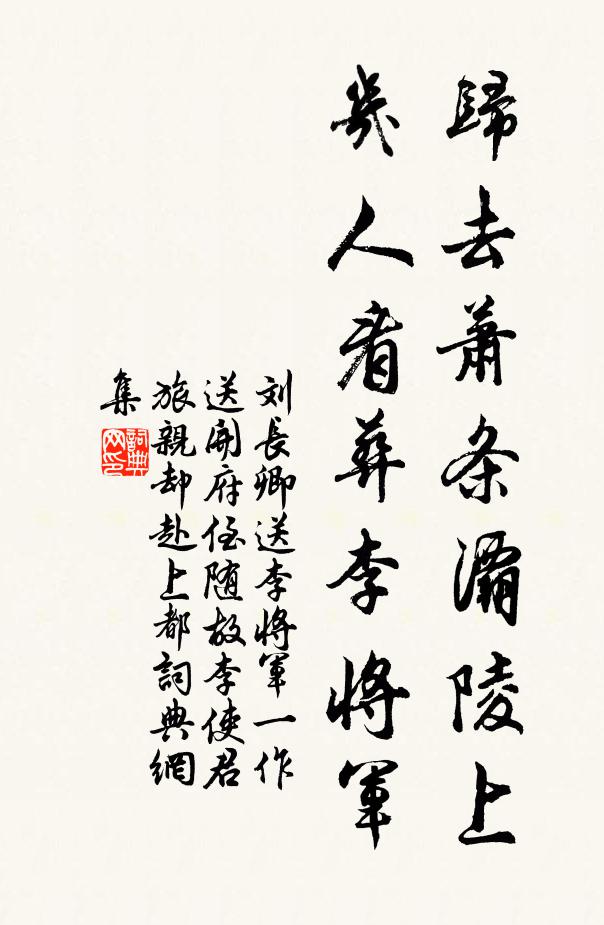 歸去蕭条灞陵上
幾人看葬李將軍
刘長卿送李將軍一作
送開府侄随故李使君
旅親却赴上都詞典網
集
詞典
网印